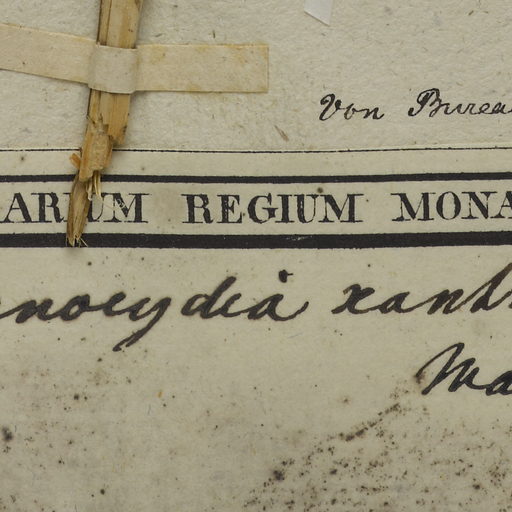 Von Burea
ARIUM REGIUM MONA
nocydia xanth
Ma